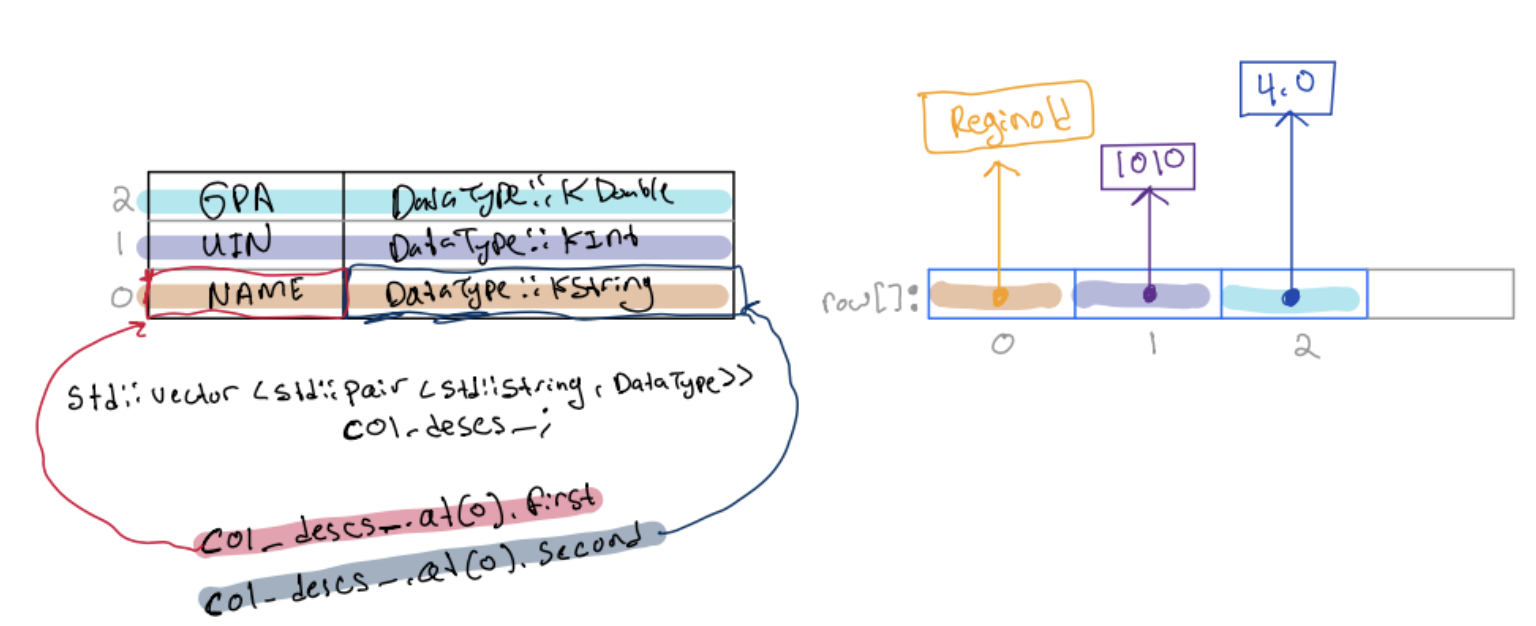 2 GPA DataType::KDouble
1 UIN DataType::KInt
0 NAME DataType::KString
std::vector <std::pair <std::string, DataType>>
col_descs_;
col_descs_.at(0).first
col_descs_.at(0).second
Reginold
1010
4.0
row[]:
0 1 2